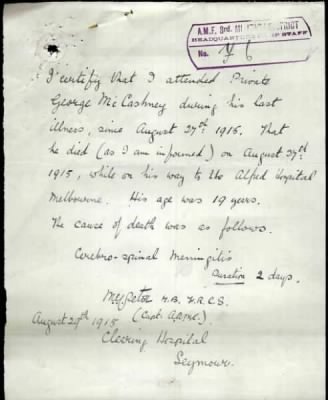 A.M.F. 3rd. MILITARY DISTRICT
HEADQUARTERS STAFF
No.
I certify that I attended Private
George McCashney during his last
illness, since August 27th 1915. That
he died (as I am informed) on August 27th
1915, while on his way to the Alfred Hospital
Melbourne. His age was 19 years.
The cause of death was as follows.
Cerebro-spinal Meningitis
Duration 2 days.
M.B. F.R.C.S.
August 29th 1915 (Capt. A.A.M.C.)
Clearing Hospital
Seymour.